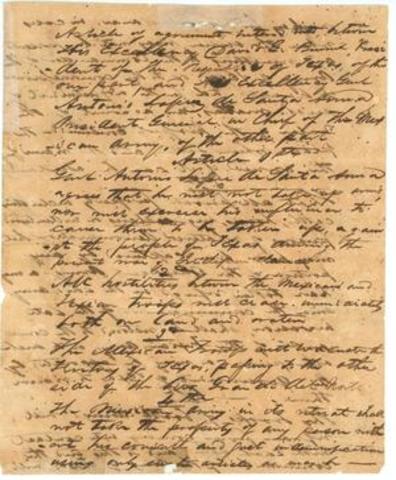 Articles of agreement entered into between
His Excellency David G. Burnet Presi
dent of the Republic of Texas, of the
one part, and His Excellency Genl
Antonio Lopez de Santa Anna
President General in Chief of the Mex
ican army, of the other part
Article 1st
Genl Antonio Lopez de Santa Anna
agrees that he will not take up arms
nor will exercise his influence to
cause them to be taken up, again
st the people of Texas during the
present war of Independence
All hostilities between the Mexican and
Texian troops will cease immediately
both on land and water
The Mexican troops will evacuate the
Territory of Texas, passing to the other
side of the Rio Grande del Norte
The Mexican Army in its retreat shall
not take the property of any person with
out his consent and just indemnification
using only such articles as may